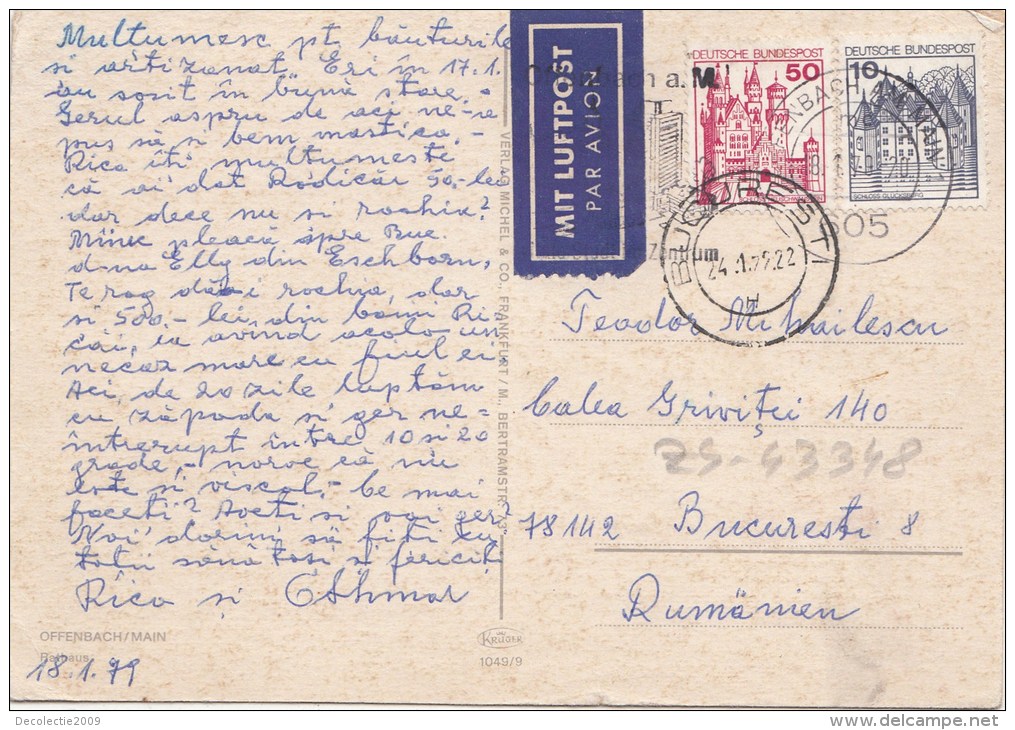 Multumesc pt. băuturile
si artizanat. Eri în 17.1.
au sosit în bună stare.
Gerul aspru de aci ne-a
pus să si bem mastica.-
Rica îti multumesti
că ai dat Rodicăi 50.-lei
dar dece nu si rochia?
Mîine pleacă spre Buc.
d-na Elly din Eschborn,
Te rog dă-i rochia, dar
si 500.- lei din banii Ri-
căi, ea avînd acolo un
necaz mare cu fiul ei.
Aci, de 20 zile luptăm
cu zăpada si ger ne=
întrerupt intre 10 si 20
grade,- noroc că nu
este si viscol.- Ce mai
faceti? Aveti si voi ger?
Noi dorim să fiti cu
totii sănătosi si fericiti
Rica și Othmar
OFFENBACH/MAIN
Rathaus
18.1.79
VERLAG MICHEL & CO., FRANKFURT/M., BERTRAMSTR. 73
KRÜGER
1049/9
MIT LUFTPOST
PAR AVION
Offenbach a. M.
Zentrum
DEUTSCHE BUNDESPOST
50
DEUTSCHE BUNDESPOST
10
SCHLOSS GLÜCKSBURG
OFFENBACH AM MAIN
605
BUCUREȘTI
24.1.79.22
Teodor Mihailescu
Calea Griviței 140
ZS-43348
78142 Bucuresti 8
Rumänien
Decolectie2009
delcampe.net